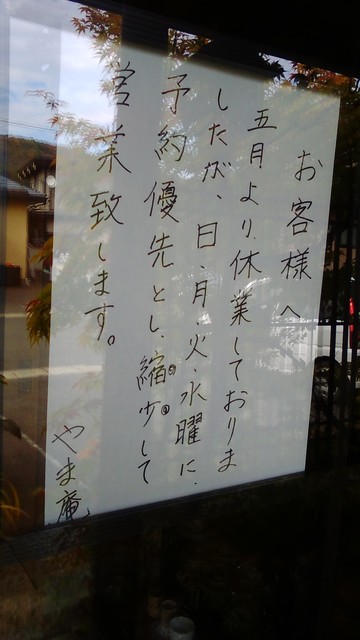 お客様へ
五月より、休業しておりま
したが、日、月、火、水曜に、
予約優先とし、縮少して
営業致します。
やま庵